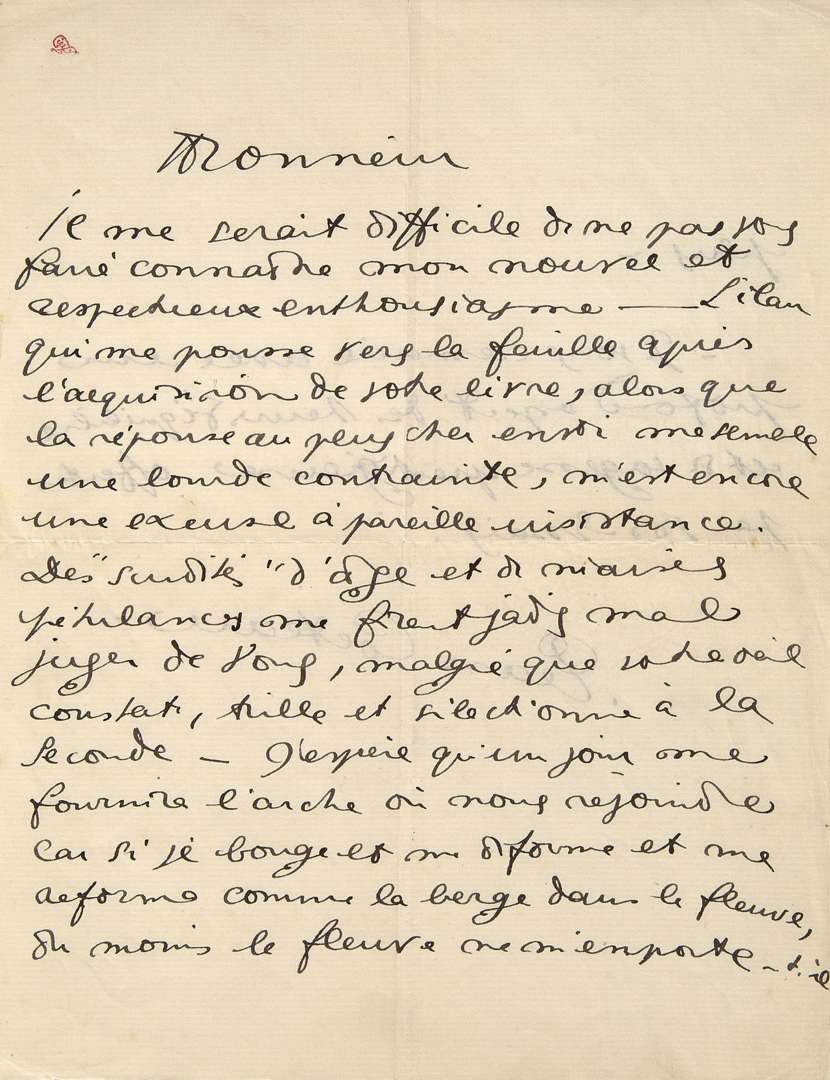 Monsieur
Il me serait difficile de ne pas vous
faire connaître mon nouvel et
respectueux enthousiasme — L'élan
qui me pousse vers la feuille après
l'acquisition de votre livre, alors que
la réponse au plus cher envoi me semble
une lourde contrainte, m'est encore
une excuse à pareille insistance.
Des "surdités" d'âge et de niaises
pétulances me firent jadis mal
juger de vous, malgré que votre œil
constate, trille et sélectionne à la
seconde — J'espère qu'un jour me
fournira l'arche où nous rejoindre
car si je bouge et me déforme et me
reforme comme la berge dans le fleuve,
du moins le fleuve ne m'emporte-t-il